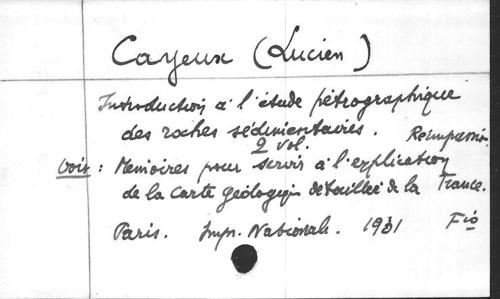 Cayeux (Lucien)
Introduction à l'étude pétrographique
des roches sédimentaires. Réimpression
2 vol.
Voir : Mémoires pour servir à l'explication
de la Carte géologique détaillée de la France.
Paris. Imp. Nationale. 1931 Fio